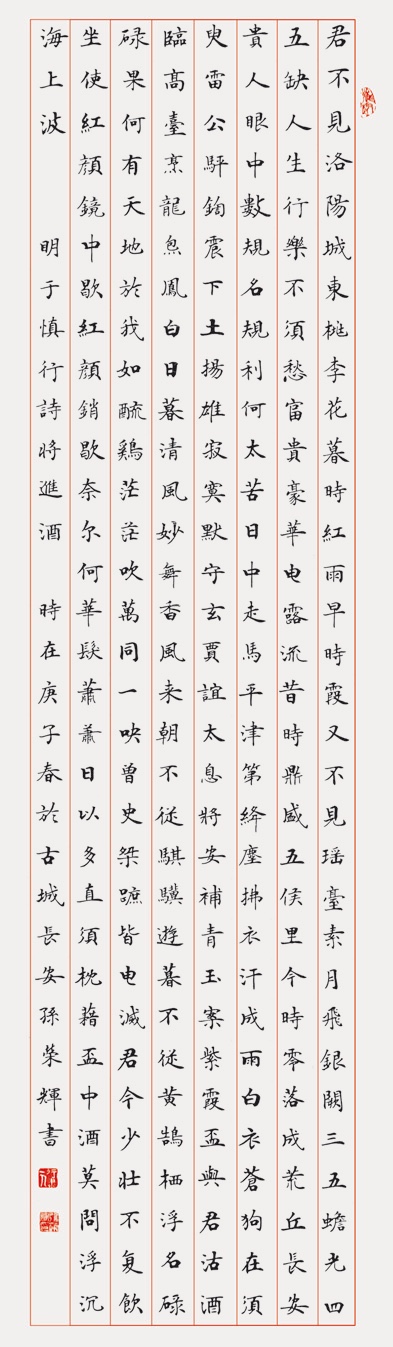 君不見洛陽城東桃李花暮時紅雨早時霞又不見瑶臺素月飛銀闕三五蟾光四
五缺人生行樂不須愁富貴豪華电露流昔時鼎盛五侯里今時零落成荒丘長安
貴人眼中數規名規利何太苦日中走馬平津第絳塵拂衣汗成雨白衣蒼狗在須
臾雷公震下土揚雄寂寞默守玄賈誼太息將安補青玉案紫霞盃與君沽酒
臨高臺烹龍炰鳳白日暮清風妙舞香風来朝不從騏驥遊暮不從黄鵠栖浮名碌
碌果何有天地於我如醯鷄茫茫吹萬同一吷曾史桀蹠皆电滅君今少壯不复飲
坐使紅顔鏡中歇紅顔銷歇奈尔何華髮蕭蕭日以多直須枕藉盃中酒莫問浮沉
海上波 明于慎行詩將進酒 時在庚子春於古城長安孫榮輝書